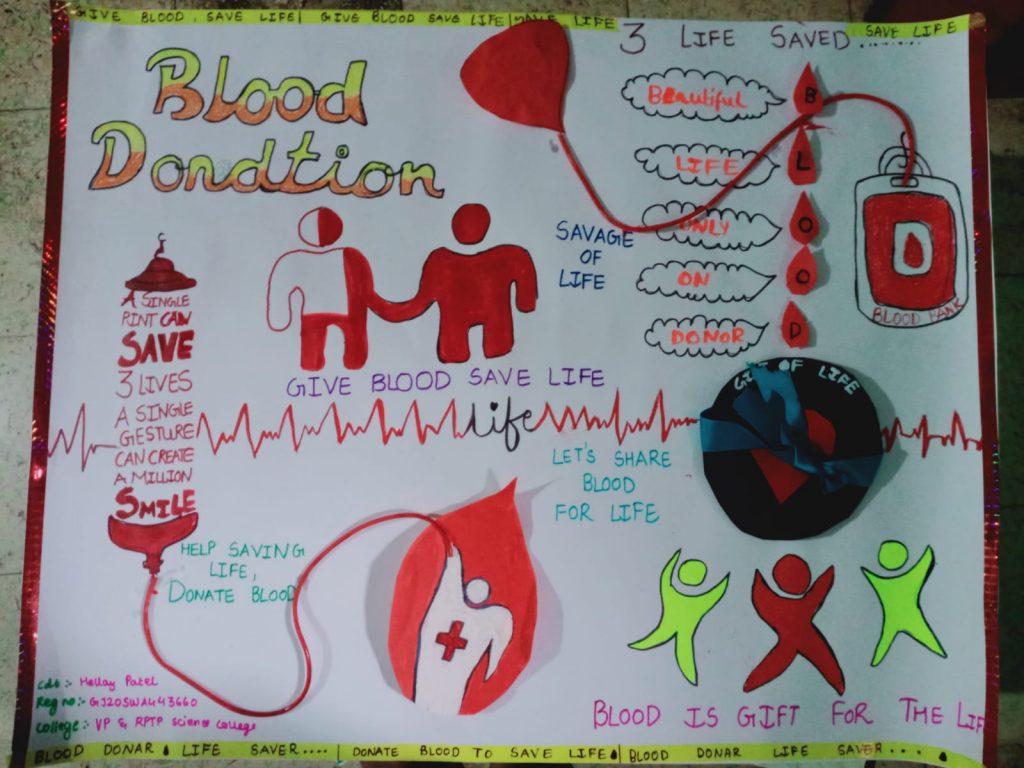 GIVE BLOOD, SAVE LIFE| GIVE BLOOD SAVE LIFE | SAVE LIFE
SAVE LIFE
Blood
Dondtion
3 LIFE SAVED........
BEautiful B
LIFE L
ONLY O
ON O
DONOR D
BLOOD BANK
SAVAGE
OF
LIFE
A SINGLE
PINT CAN
SAVE
3 LIVES
A SINGLE
GESTURE
CAN CREATE
A MILLION
SMILE
GIVE BLOOD SAVE LIFE
life
GIFT OF LIFE
LET'S SHARE
BLOOD
FOR LIFE
HELP SAVING
LIFE,
DONATE BLOOD
BLOOD IS GIFT FOR THE LIF
Cdt :- Hellay Patel
Reg no:- GJ20SWA443660
College :- VP & RPTP Science College
BLOOD DONAR LIFE SAVER.... | DONATE BLOOD TO SAVE LIFE | BLOOD DONAR LIFE SAVER....